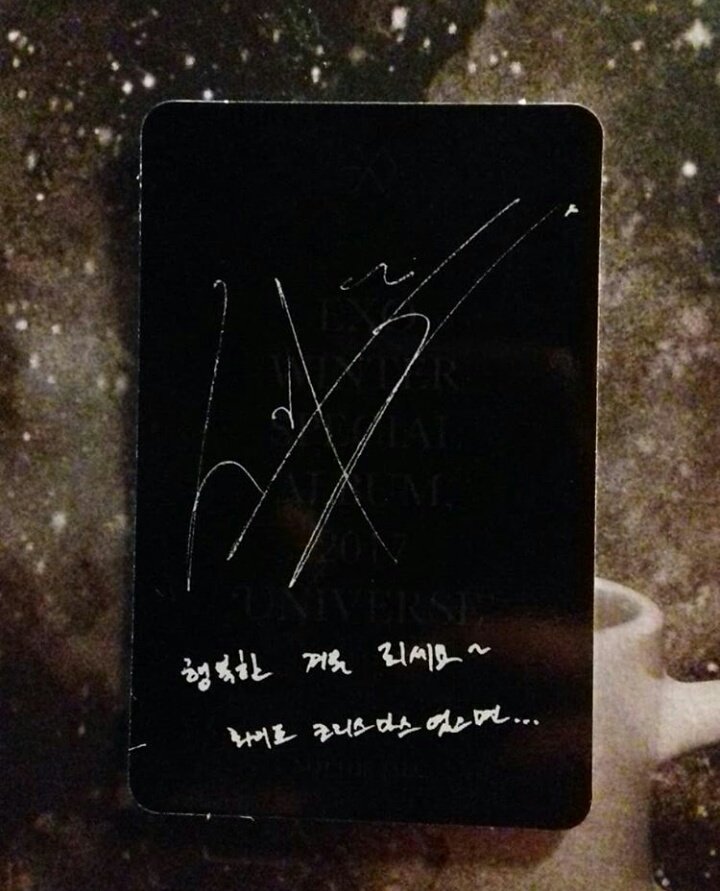 EXO
WINTER
SPECIAL
ALBUM,
2017
'UNIVERSE'
행복한 겨울 되세요~
화이트 크리스마스 였으면...